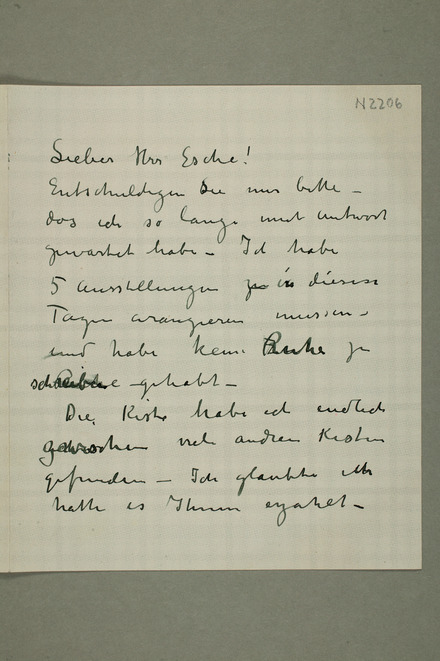 N 2206
Lieber Herr Esche!
Entschuldigen Sie mir bitte –
das ich so lange mit antwort
gewartet habe – Ich habe
5 Ausstellungen zu in diesen
Tagen arangieren mussen –
und habe keine Ruhe zu
schreiben gehabt –
Die Kiste habe ich endlich
zwischen viele andren Kisten
gefunden – Ich glaubte ich
hatte es Ihnen